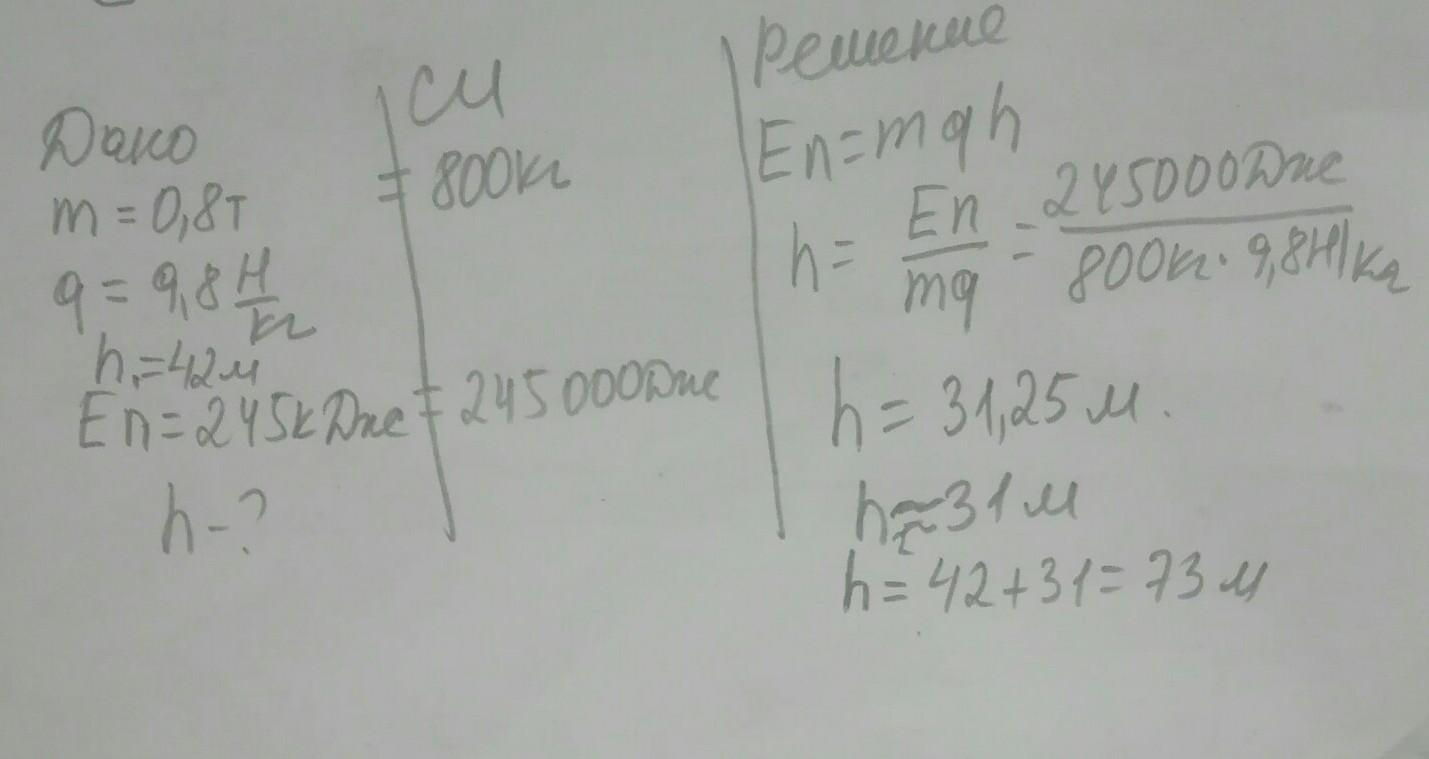 Дано
m = 0,8т
g = 9,8 Н/кг
h₁=42м
Eп=245кДже
h-?
СИ
= 800кг
= 245000Дже
Решение
Eп=mgh
h= Eп/mg = 245000Дже/800кг· 9,8Н/кг
h= 31,25 м.
h≈31м
h= 42+31= 73м